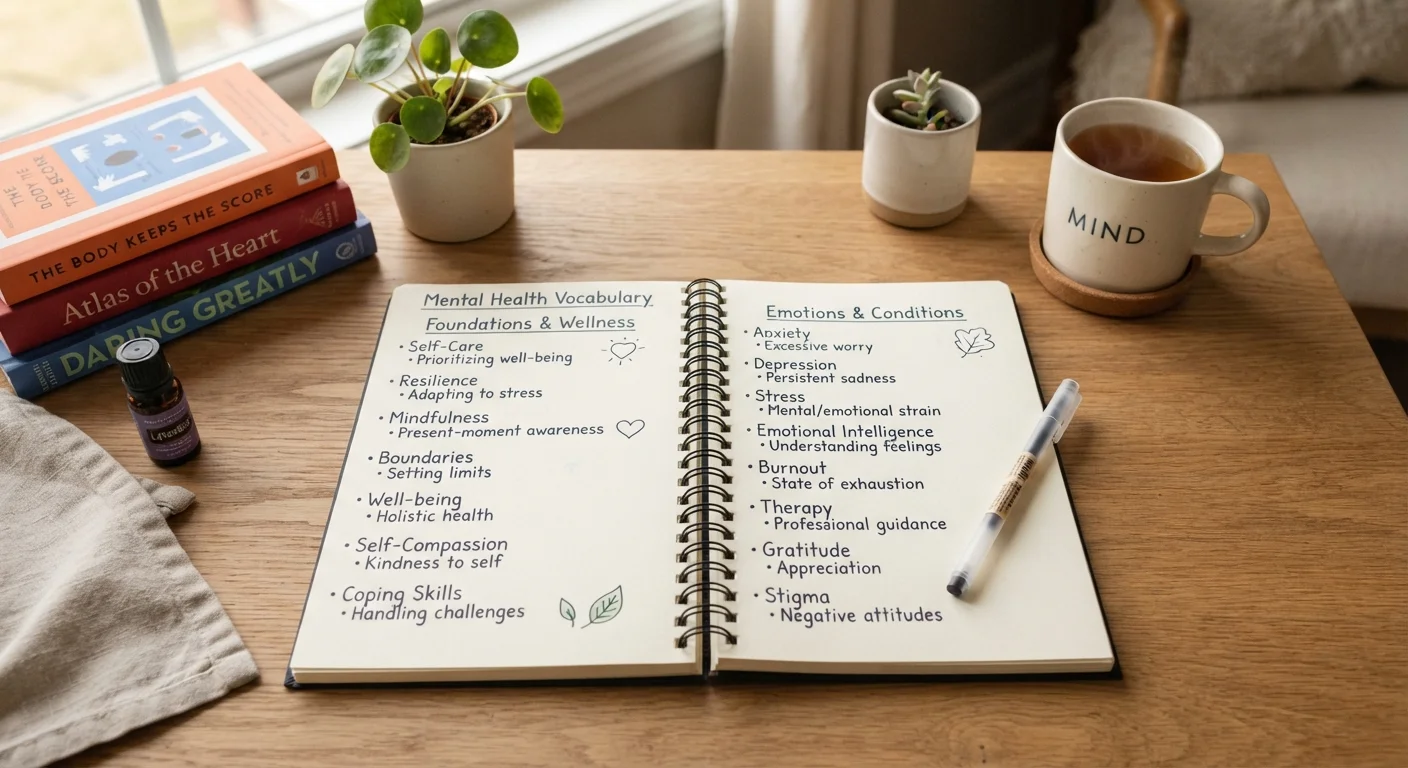 THE
BODY KEEPS
THE SCORE
THE BODY KEEPS THE SCORE
Atlas of the Heart
DARING GREATLY
MIND
Mental Health Vocabulary
Foundations & Wellness
• Self-Care
• Prioritizing well-being
• Resilience
• Adapting to stress
• Mindfulness
• Present-moment awareness
• Boundaries
• Setting limits
• Well-being
• Holistic health
• Self-Compassion
• Kindness to self
• Coping Skills
• Handling challenges
Emotions & Conditions
• Anxiety
• Excessive worry
• Depression
• Persistent sadness
• Stress
• Mental/emotional strain
• Emotional Intelligence
• Understanding feelings
• Burnout
• State of exhaustion
• Therapy
• Professional guidance
• Gratitude
• Appreciation
• Stigma
• Negative attitudes